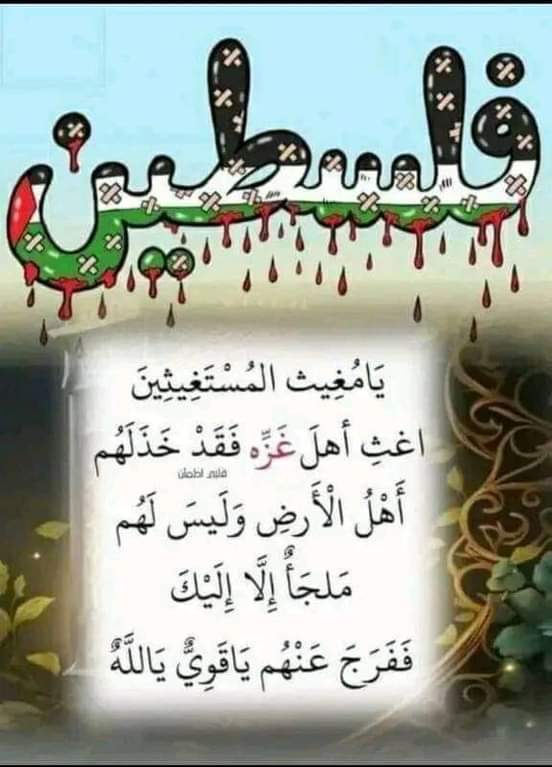 فلسطين
يَامُغِيث المُسْتَغِيثِينَ
اغثِ أهلَ غَزِّه فَقَدْ خَذَلَهُم
قلبي اطمأن
أَهْلُ الْأَرضِ وَلَيسَ لَهُم
مَلجَأٌ إِلَّا إِلَيْكَ
فَفَرَجَ عَنْهُم يَاقَوِيٌّ يَاللَّهٌ